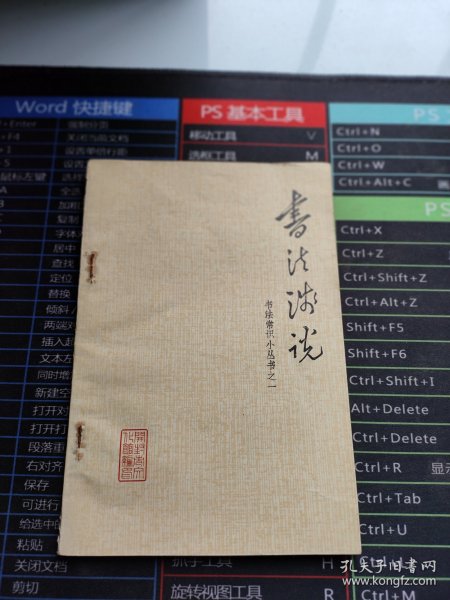 Word 快捷键
PS 基本工具
PS
+Enter
+F4
关闭当前文档
+1
+5
鼠标左键
A
全选
复制
字体
居中
查找
定位
替换
倾斜
两端对
插入超
文本左
同时增
新建空
打开对
打开打
段落重
右对齐
保存
可进行
给选中的
粘贴
关闭文档
剪切
移动工具 V
选框工具 M
抓手工具 H
旋转视图工具 R
Ctrl+N
Ctrl+O
Ctrl+W
Ctrl+Alt+C
PS
Ctrl+X
Ctrl+Z
Ctrl+Shift+Z
Ctrl+Alt+Z
Shift+F5
Shift+F6
Ctrl+Shift+I
Alt+Delete
Ctrl+Delete
Ctrl+R 显示
Ctrl+Tab
Ctrl+U
Ctrl+M
书法浅说
书法常识小丛书之一
孔夫子旧书网
www.kongfz.com